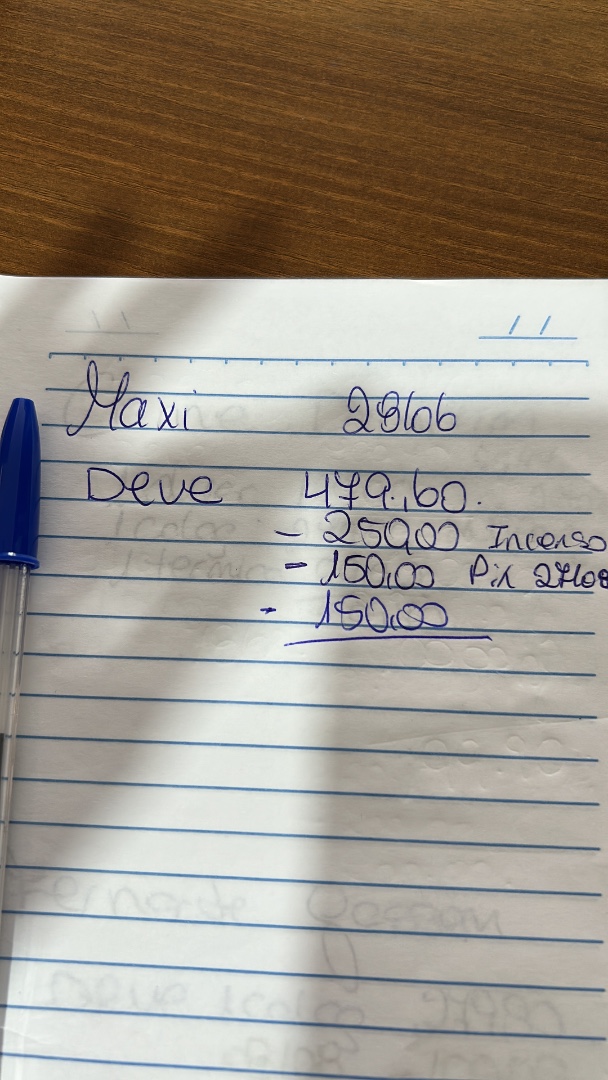 Maxi 29/06
Deve 479,60.
- 250,00 Incenso
- 150,00 Pix 27/08
- 150,00